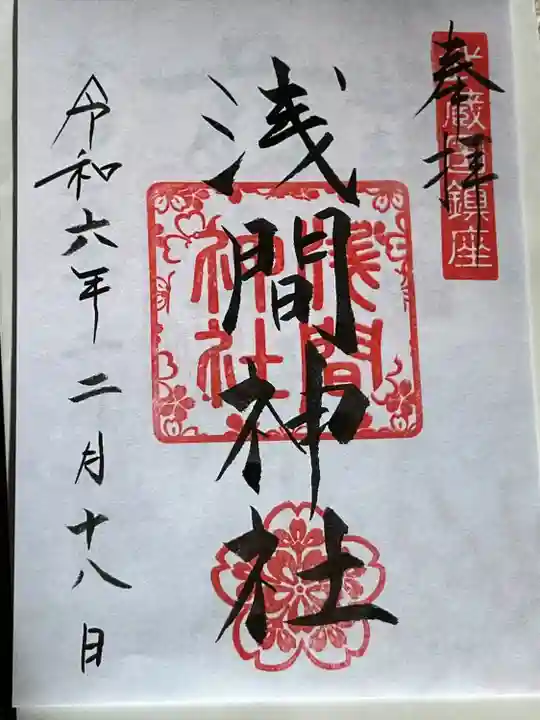 奉拝
鎮座
浅間神社
浅間神社
令和六年二月十八日